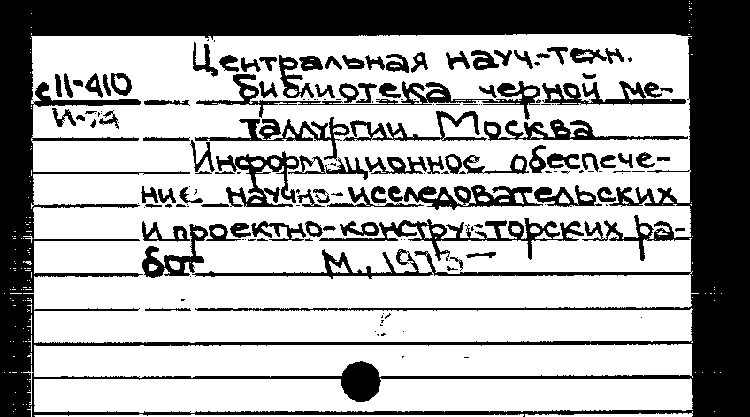 Центральная науч.-техн.
с11-410 библиотека черной ме-
И-74 таллургии. Москва
Информационное обеспече-
ние научно-исследовательских
и проектно-конструкторских ра-
бот. М., 1973—